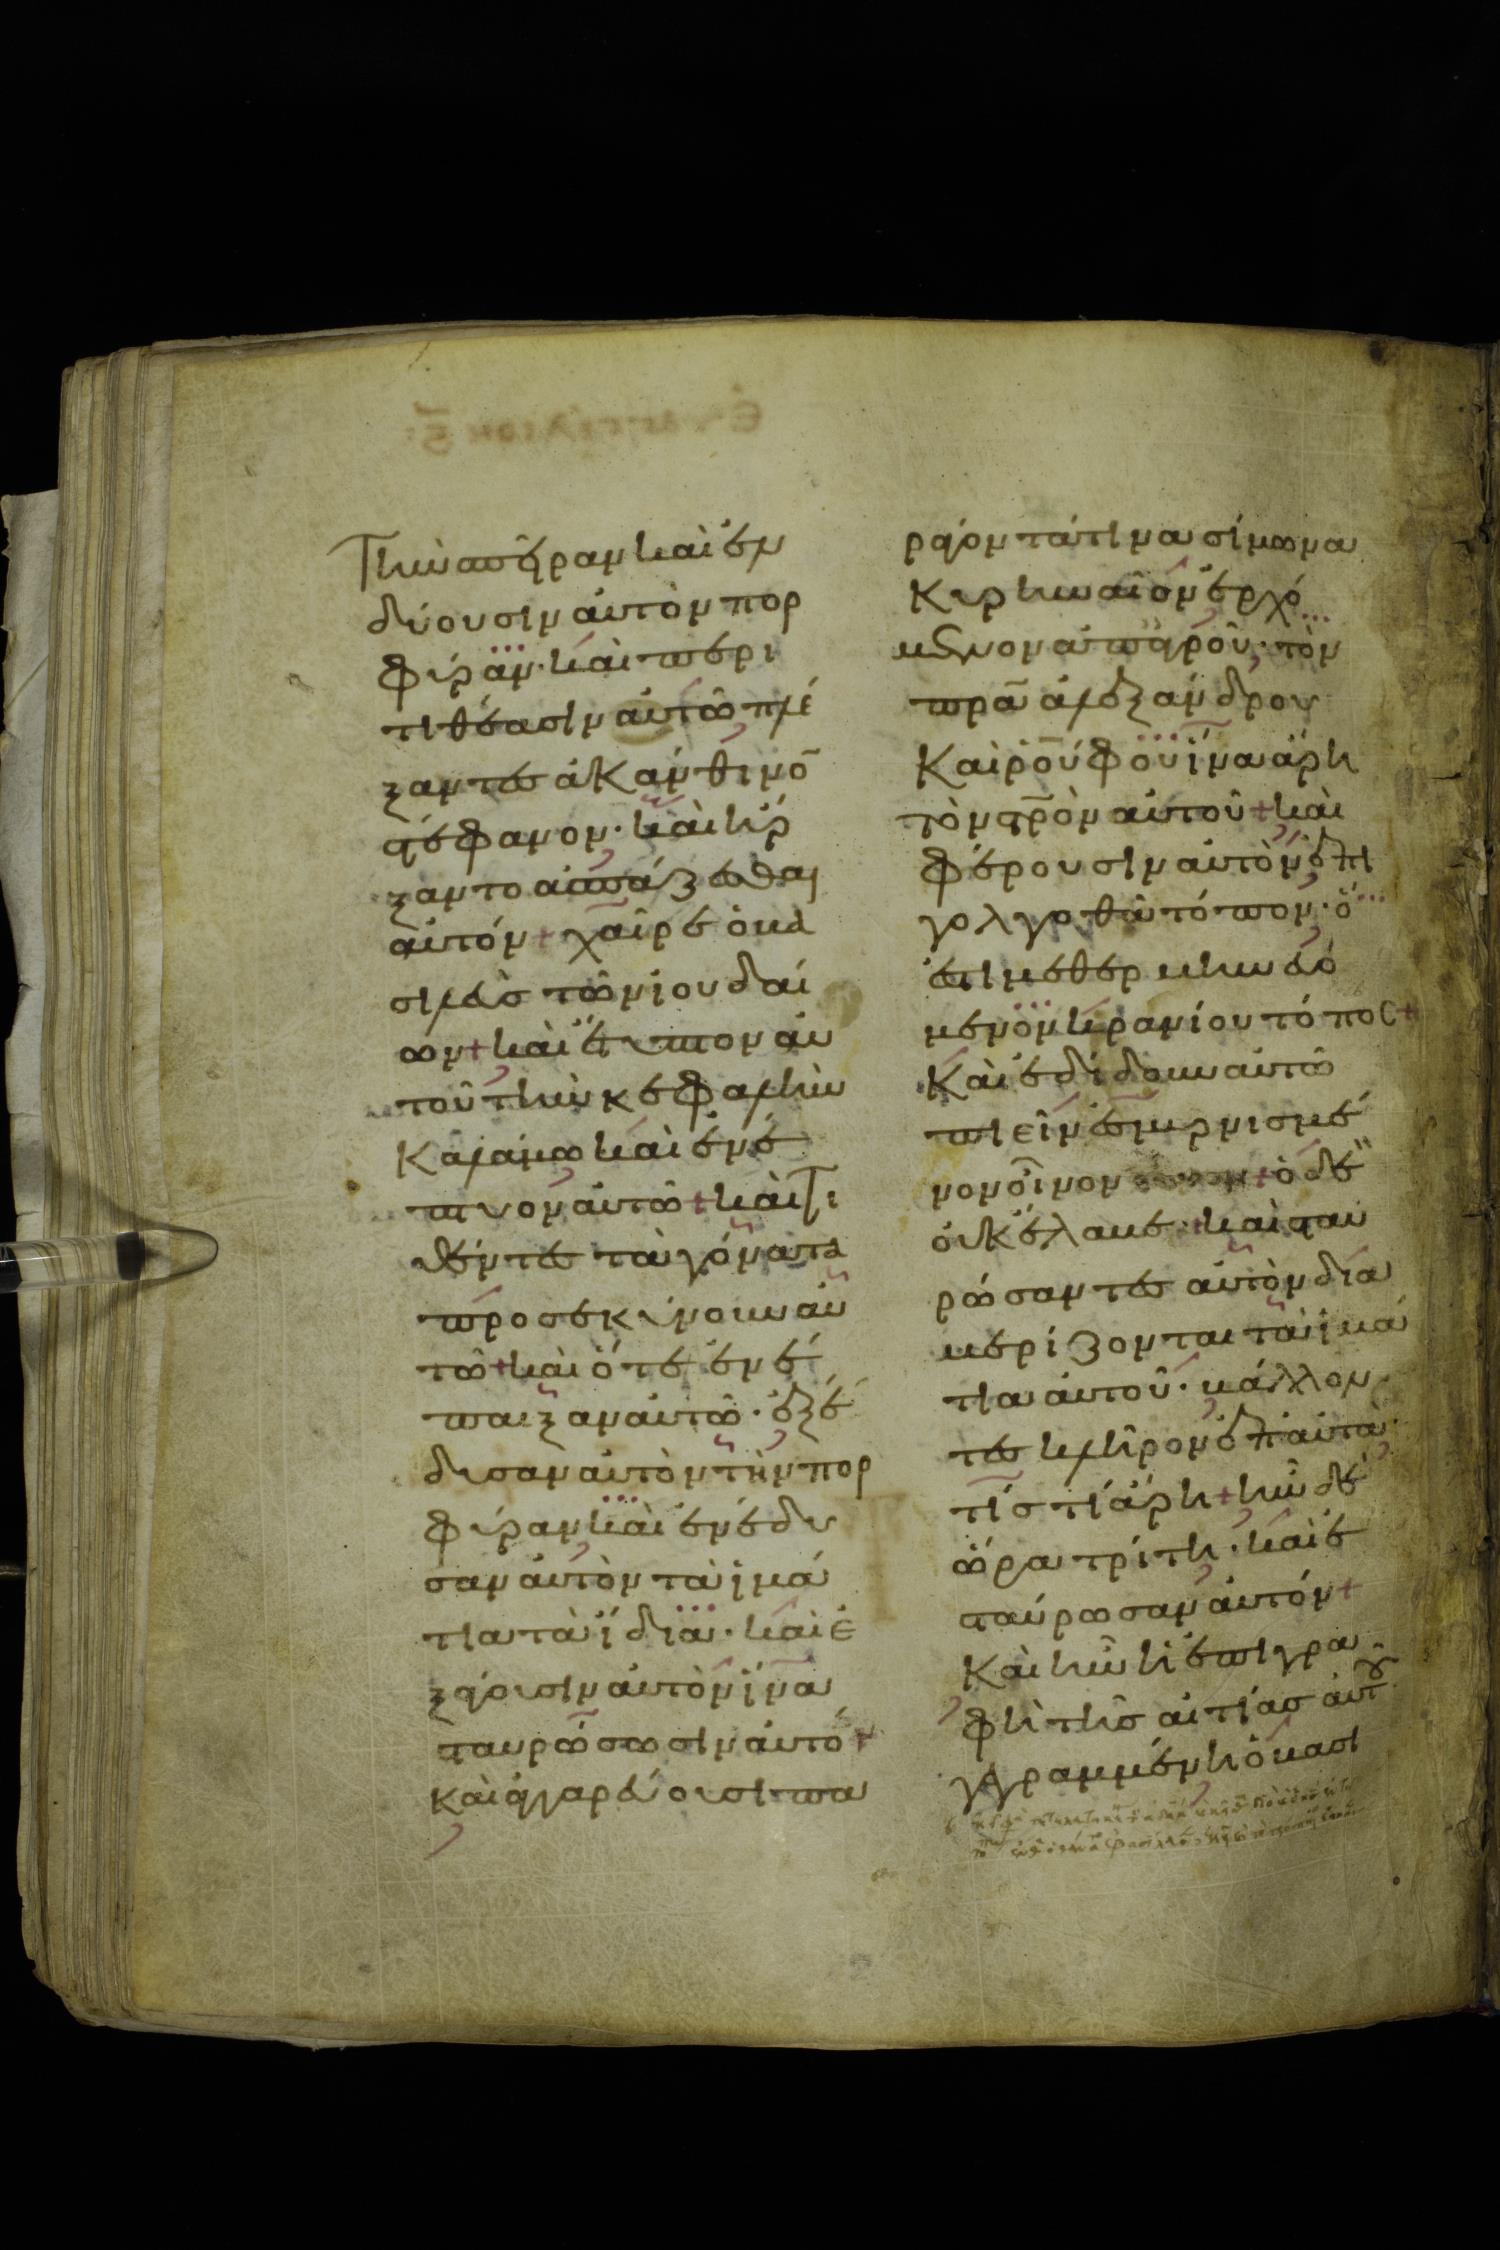 τὴν σπεῖραν καὶ ἐν
δύουσιν αὐτὸν πορ
φύραν· καὶ περι
τιθέασιν αὐτῶ πλέ
ξαντες ἀκάνθινο̄
στέφανον· καὶ ἤρ
ξαντο ἀσπάζεσθαι
αὐτόν + χαῖρε ὁ βα
σιλεὺς τῶν ἰουδαί
ων + καὶ ἔτυπτον αὐ
τοῦ τὴν κεφαλὴν
καλάμω καὶ ἐνέ
πτυον αὐτῶ + καὶ τι
θέντες τὰ γόνατα
προσεκύνουν αὐ
τῶ + καὶ ὅτε ἐνέ
παιξαν αὐτῶ· ἐξέ
δυσαν αὐτὸν τὴν πορ
φύραν καὶ ἐνέδυ
σαν αὐτὸν τὰ ἱμά
τια τὰ ἴδια· καὶ ἐ
ξάγουσιν αὐτὸν ἵνα
σταυρώσωσιν αὐτό +
καὶ ἀγγαρεύουσι πα
ράγοντά τινα σίμωνα
κυρηναῖον ἐρχό
μενον ἀπ' ἀγροῦ· τὸν
πρ̄α ἀλεξάνδρου
καὶ ῥούφου ἵνα ἄρη
τὸν στ̄ρὸν αὐτοῦ + καὶ
φέρουσιν αὐτὸν ἐπὶ
γολγοθᾶ τόπον· ὅ
ἐστι μεθερμηνευό
μενον κρανίου τόπος +
καὶ ἐδίδουν αὐτῶ
πιεῖν ἐσμυρνισμέ
νον οἶνον + ὁ δὲ
οὐκ ἔλαβε + καὶ σταυ
ρώσαντες αὐτὸν δια
μερίζονται τὰ ἱμά
τια αὐτοῦ· βάλλον
τες κλῆρον ἐπ' αὐτὰ
τίς τί ἄρη + ἦν δὲ
ὥρα τρίτη· καὶ ἐ
σταύρωσαν αὐτόν +
καὶ ἦν ἡ ἐπιγρα
φὴ τῆς αἰτίας αὐτοῦ
γεγραμμένη ὁ βασι